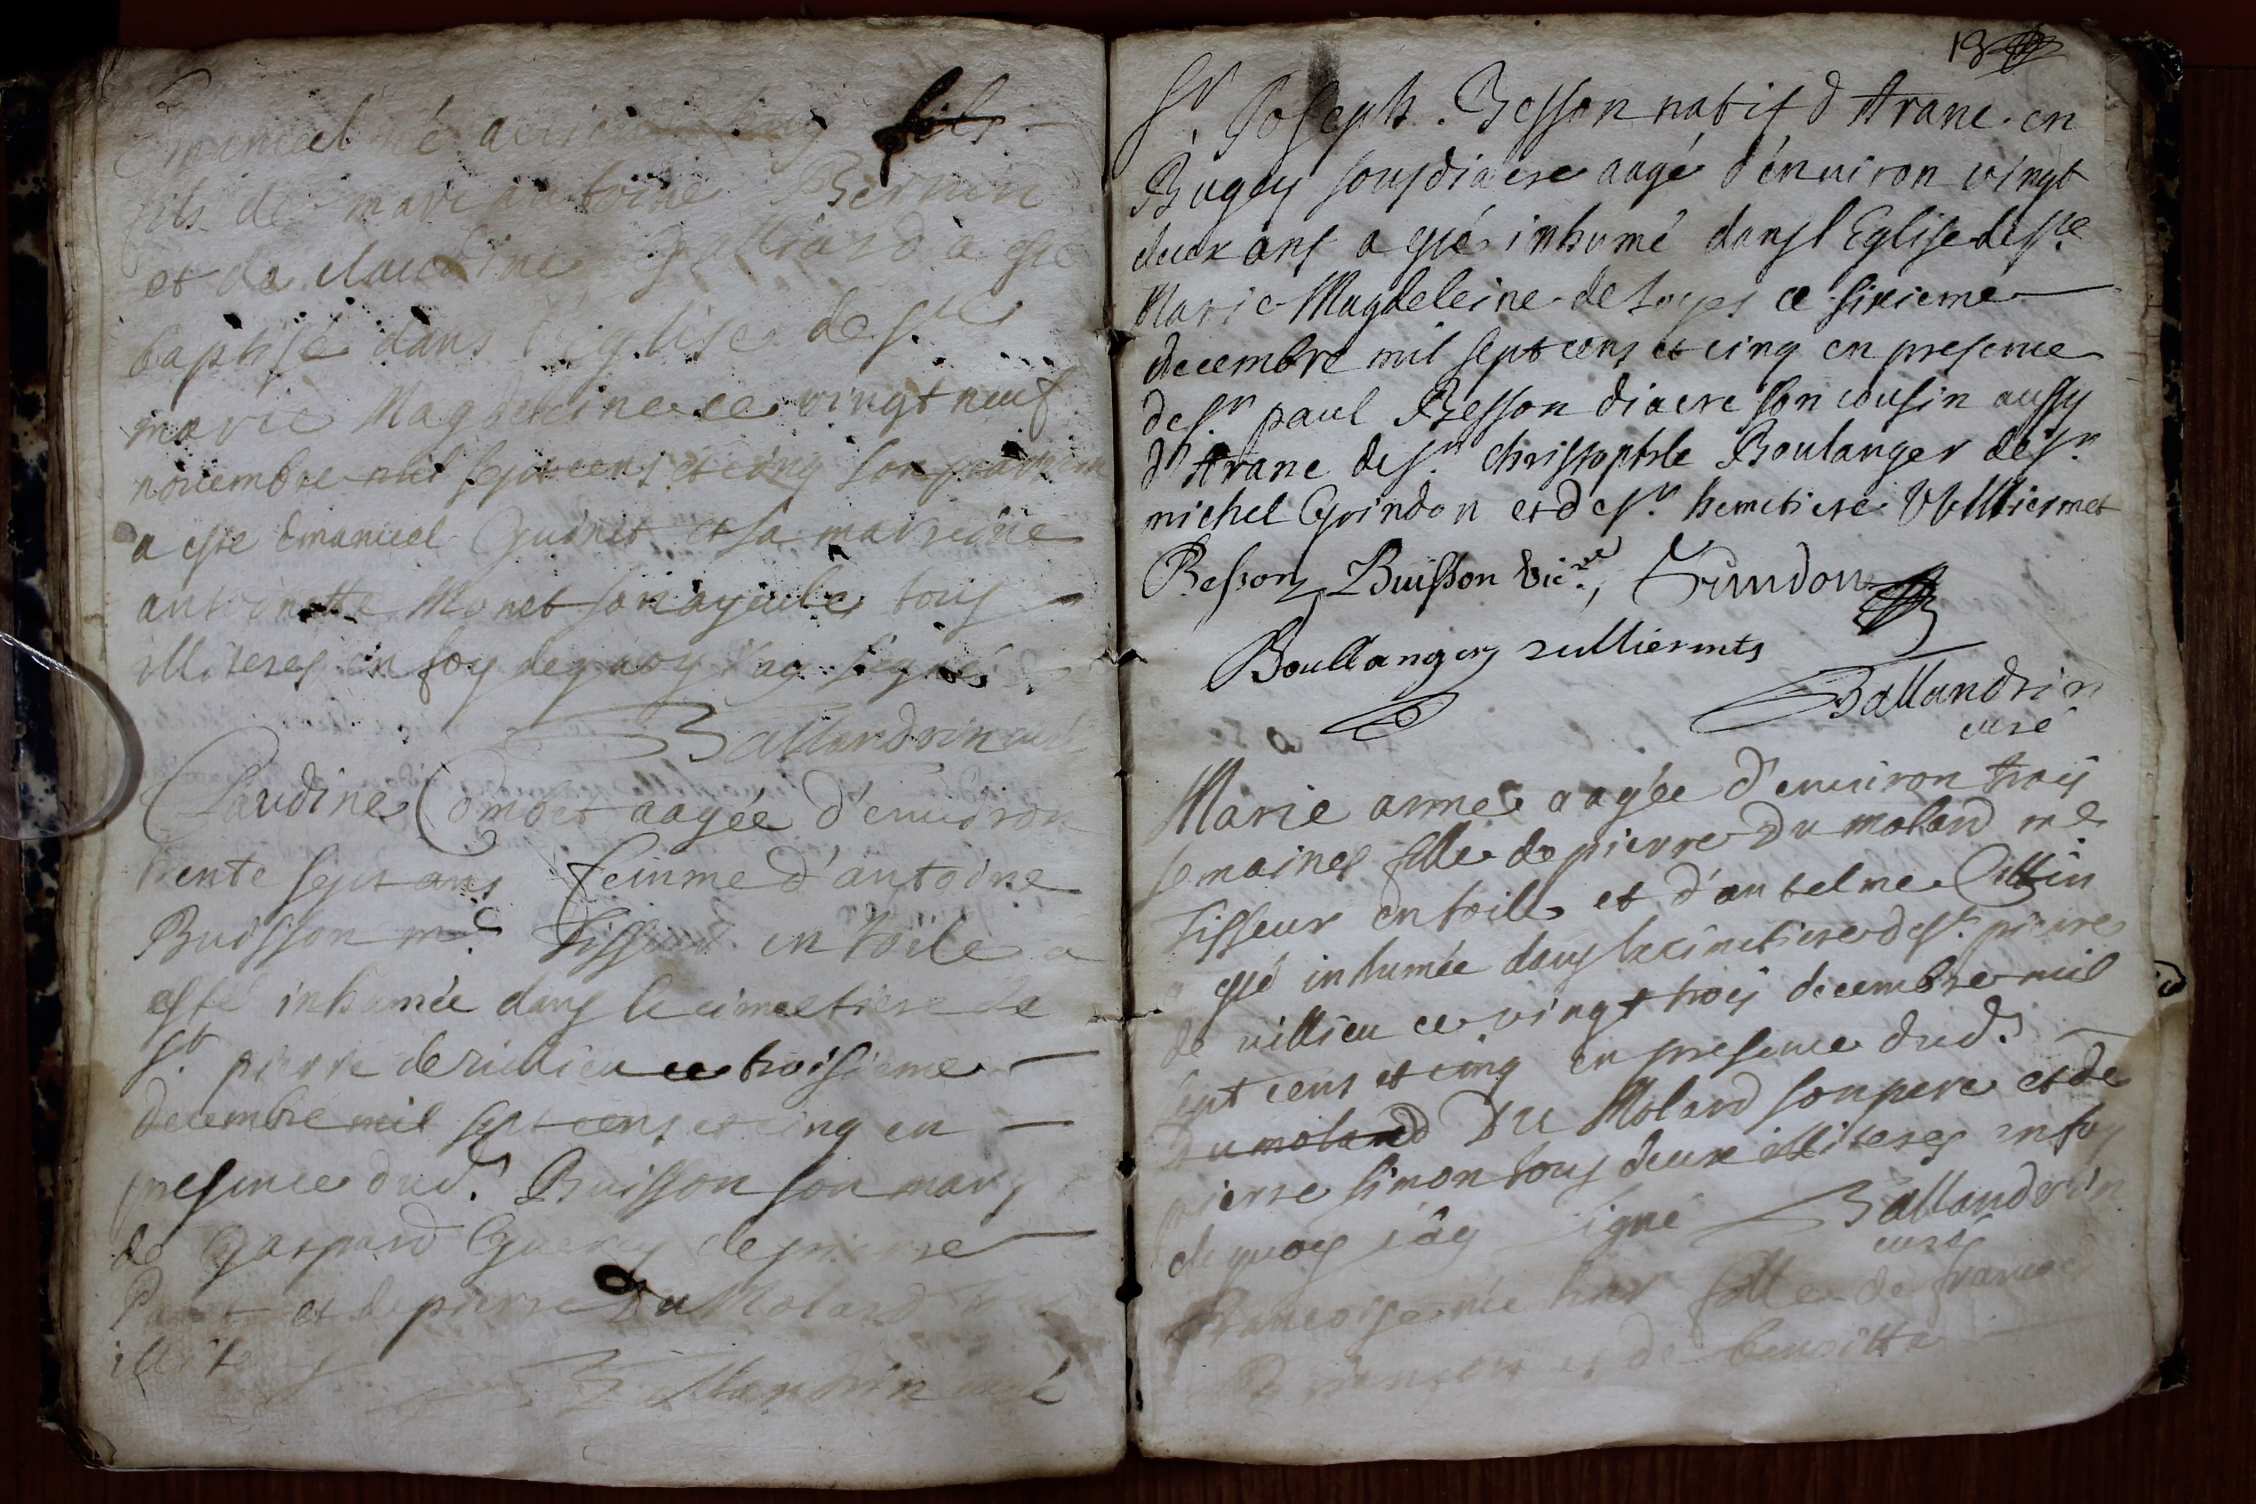 Emanuel né fils
fils de marc antoine Bernin
et de claudine a esté
baptisé dans l'eglise de ste
marie Magdeleine ce vingt neuf
novembre mil sept cens et cinq son parrain
a este Emanuel Guinet et sa marreine
antoinette Monet son ayeule tous
illiteres en foy de quoy i'ay signé
Ballandrin curé
Claudine Combet aagée d'environ
trente sept ans femme d'antoine
Buisson me Tisseur en toile a
esté inhumée dans le cimetiere de
st. pierre de villieu ce troisieme
decembre mil sept cens et cinq en
presence dud. Buisson son mary
de Gaspard de pierre
et de pierre Du Molard
illiteres
Ballandrin curé
13
Sr. Joseph Besson natif d'Arane en
Bugey sousdiacre aagé d'environ vingt
deux ans a esté inhumé dans l'Eglise de ste
Marie Magdeleine de Loyes ce sixieme
decembre mil sept cens et cinq en presence
de sr. paul Besson diacre son cousin aussy
d'Arane de sr. christophle Boulanger de sr.
michel Grindon et de sr. hemetiere Vulliermet
Besson Buisson vicre, Grindon
Boullanger vulliermets
Ballandrin
curé
Marie anne aagée d'environ trois
semaines fille de pierre Du molard me
Tisseur en toile et d'antelme Cattin
a esté inhumée dans le cimetiere de st. pierre
de villieu ce vingt trois decembre mil
sept cens et cinq en presence dud.
Dumolard DU Molard son pere et de
pierre simon tous deux illiteres en foy
de quoy i'ay signé Ballandrin
curé
Francoise née hier fille de francois
et de benoitte